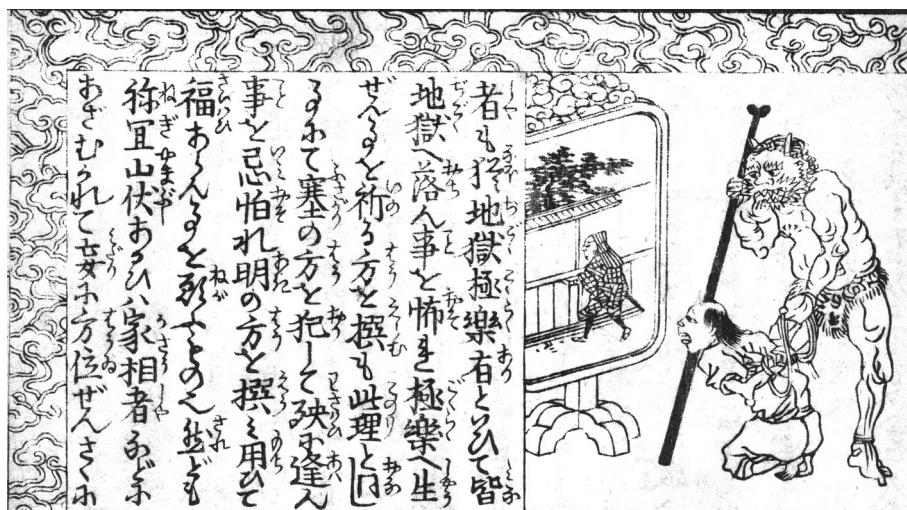 者も猶地獄極樂有といひて皆
地獄へ落ん事を怖れ極樂へ生
ぜん事を祈る方を撰も此理と同し
事にて塞の方を犯して殃に逢ん
事を忌怕れ明の方を撰み用ひて
福あらん事を願ふもの也然ども
祢宜山伏あるひハ家相者などに
あざむかれて妄に方位ぜんさくに